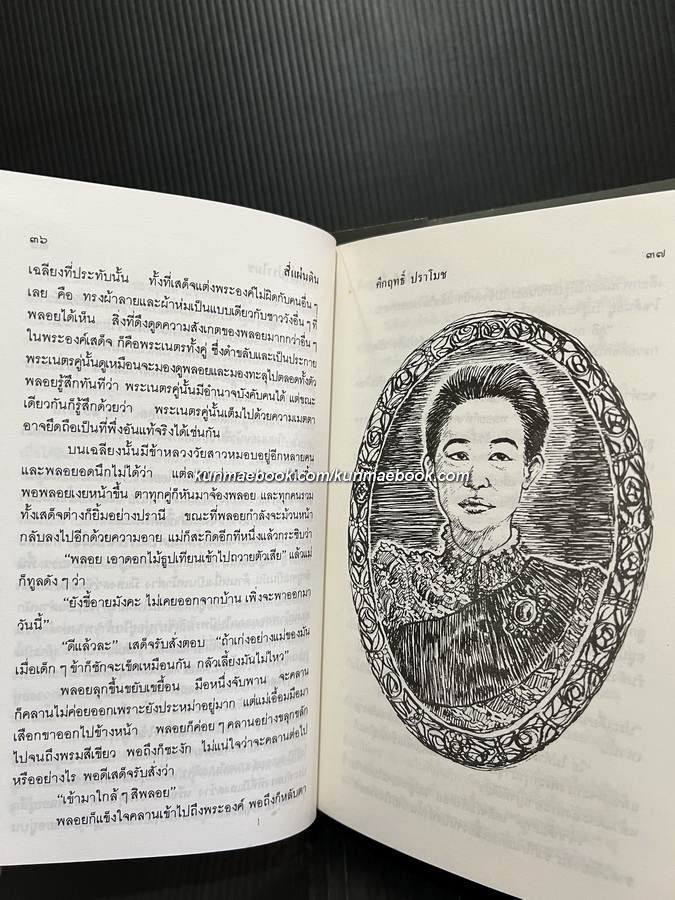 ๓๖
สี่แผ่นดิน
เฉลียงที่ประทับนั้น ทั้งที่เสด็จแต่งพระองค์ไม่ผิดกับคนอื่น ๆ
เลย คือ ทรงผ้าลายและผ้าห่มเป็นแบบเดียวกับชาววังอื่น ๆ ที่
พลอยได้เห็น สิ่งที่ดึงดูดความสังเกตของพลอยมากกว่าอื่น ๆ
ในพระองค์เสด็จ ก็คือพระเนตรทั้งคู่ ซึ่งดำขลับและเป็นประกาย
พระเนตรคู่นั้นดูเหมือนจะมองดูพลอยและมองทะลุไปตลอดทั้งตัว
พลอยรู้สึกทันทีว่า พระเนตรคู่นั้นมีอำนาจบังคับคนได้ แต่ขณะ
เดียวกันก็รู้สึกด้วยว่า พระเนตรคู่นั้นเต็มไปด้วยความเมตตา
อาจยึดถือเป็นที่พึ่งอันแท้จริงได้เช่นกัน
บนเฉลียงนั้นมีข้าหลวงวัยสาวหมอบอยู่อีกหลายคน
และพลอยอดนึกไม่ได้ว่า แต่ละ
kunmaebook.com/kunmaebook.com
พอพลอยเงยหน้าขึ้น ตาทุกคู่ก็หันมาจ้องพลอย และทุกคนรวม
ทั้งเสด็จต่างก็ยิ้มอย่างปรานี ขณะที่พลอยกำลังจะม้วนหน้า
กลับลงไปอีกด้วยความอาย แม่ก็สะกิดอีกทีหนึ่งแล้วกระซิบว่า
“พลอย เอาดอกไม้ธูปเทียนเข้าไปถวายตัวเสีย” แล้วแม่
ก็ทูลดัง ๆ ว่า
“ยังขี้อายมังคะ ไม่เคยออกจากบ้าน เพิ่งจะพาออกมา
วันนี้”
“ดีแล้วละ” เสด็จรับสั่งตอบ “ถ้าเก่งอย่างแม่ของมัน
เมื่อเด็ก ๆ ข้าก็ชักจะเข็ดเหมือนกัน กลัวเลี้ยงมันไม่ไหว”
พลอยลุกขึ้นขยับเขยื้อน มือหนึ่งจับพาน จะคลาน
ก็คลานไม่ค่อยออกเพราะยังประหม่าอยู่มาก แต่แม่เอื้อมมือมา
เสือกขาออกไปข้างหน้า พลอยก็ค่อย ๆ คลานอย่างขลุกขลัก
ไปจนถึงพรมสีเขียว พอถึงก็ชะงัก ไม่แน่ใจว่าจะคลานต่อไป
หรืออย่างไร พอดีเสด็จรับสั่งว่า
“เข้ามาใกล้ ๆ สิพลอย”
พลอยก็แข็งใจคลานเข้าไปถึงพระองค์ พอถึงก็หลับตา
คึกฤทธิ์ ปราโมช
๓๗